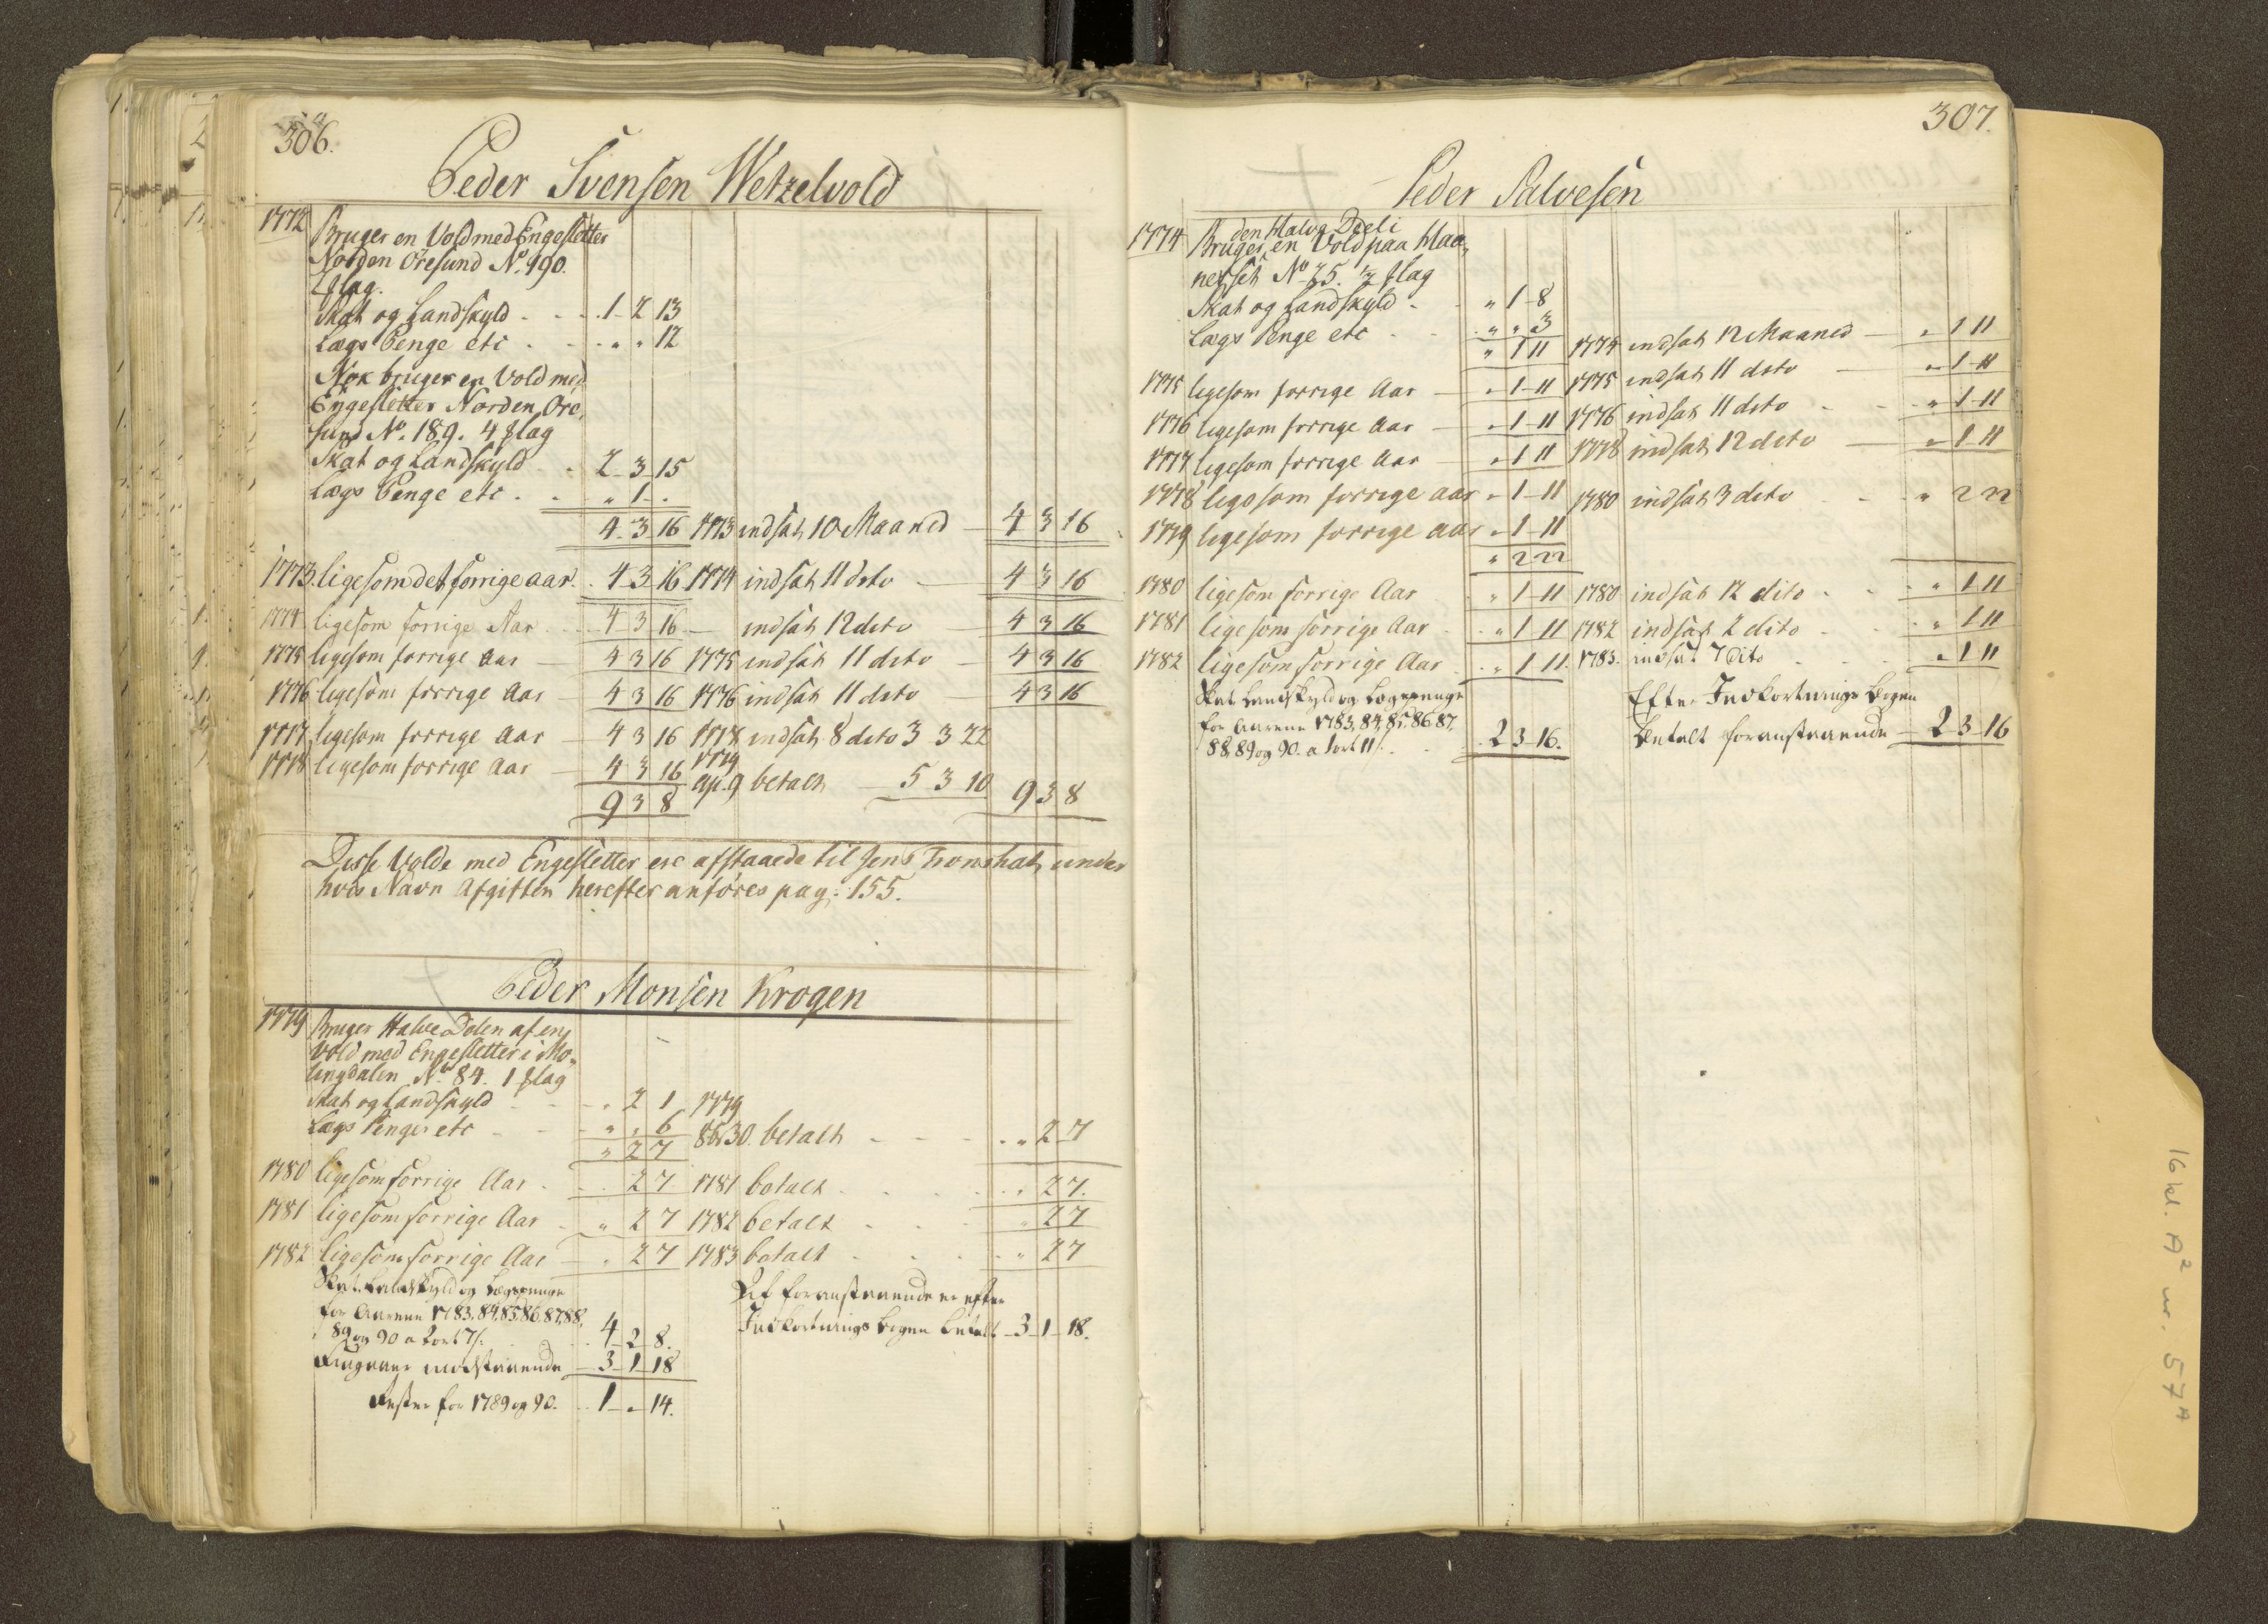 306.
Peder Svensen Wetzelvold
1772 Bruger en Vold med Engesletter
Norden Öresund No. 190.
2 flag.
Skat og Landskyld - - - 1 - 2 13
Lægs Penge etc - - - " " 12
Nok bruger en Vold med
Engesletter Norden Öre„
sund No. 189. 4 flag
Skat og Landskyld - - 2 - 3 15
Lægs Penge etc - - " 1 - .
4 - 3 16 1773 indsat 10 Maaned — 4 3 16
1773 ligesom det forrige aar. . 4 3 16 1774 indsat 11 dito — 4 3 16
1774 ligesom forrige Aar - - 4 3 16 — indsat 12 dito — 4 3 16
1775 ligesom forrige Aar — 4 3 16 1775 indsat 11 dito — 4 3 16
1776 ligesom forrige Aar — 4 3 16 1776 indsat 11 dito — 4 3 16
1777 ligesom forrige Aar — 4 3 16 1778 indsat 8 dito 3 3 22
1778 ligesom forrige Aar — 4 3 16 1779
ap. 9 betalt — 5 3 10
9 3 8 9 3 8
Disse Volde med Engesletter ere afstaaede til Jens Tronshat under
hvis Navn Afgiften herefter anföres pag: 155.
Peder Monsen Krogen
1779 Bruger Halve Delen af en
Vold med Engesletter i Mo„
lingdalen No. 84. 1 flag
Skat og Landskyld - - - " 2 1 1779
Lægs Penge etc - - " " 6 8br 30. betalt - - - " 2 - 7
" 2 7
1780 ligesom forrige Aar - - . 2 7 1781 betalt - - - " 2 7.
1781 ligesom forrige Aar - " 2 7 1782 betalt - - - " 2 7
1782 ligesom forrige Aar - " 2 7 1783 betalt - - - " 2 7
Skat Landskyld og Lægspenge
for Aarene 1783, 84, 85, 86, 87, 88,
89 og 90 a 2 ort 7 s. 4 - 2 - 8.
Af foranstaaende er efter
Indkortnings Bogen betalt - 3 - 1 - 18.
modstaaende - 3 - 1 - 18
Rester for 1789 og 90. - 1 - " - 14.
307.
Peder Salvesen
1774 den Halve Deel i
Bruger en Vold paa Maa„
nesset No 75. 1/2 flag
Skat og Landskyld - - " 1 - 8
Lægs Penge etc - - " " 3
" 1 11 1774 indsat 12 Maaned — " 1 11
1775 ligesom forrige Aar — " 1 - 11 1775 indsat 11 dito — " 1 - 11
1776 ligesom forrige Aar — " 1 - 11 1776 indsat 11 dito - - " 1 - 11
1777 ligesom forrige Aar — " 1 11 1778 indsat 12 dito — " 1 - 11
1778 ligesom forrige aar " 1 - 11 1780 indsat 3 dito - - " 2 22
1779 ligesom forrige aar " 1 - 11
" 2 22
1780 ligesom forrige Aar " 1 - 11 1780 indsat 12 dito - - " 1 11
1781 ligesom forrige Aar - " 1 11 1782 indsat 2 dito - - " 1 11
1782 ligesom forrige Aar - " 1 11. 1783. indsat 7 dito - - " 1 11
Skat Landskyld og Lægspenge
for Aarene 1783, 84, 85, 86, 87,
88, 89 og 90. a 1 ort 11 s. - - 2 3 16.
Efter Indkortnings Bogen
betalt foranstaaende — 2 3 16
16 kl. A2 nr. 57A